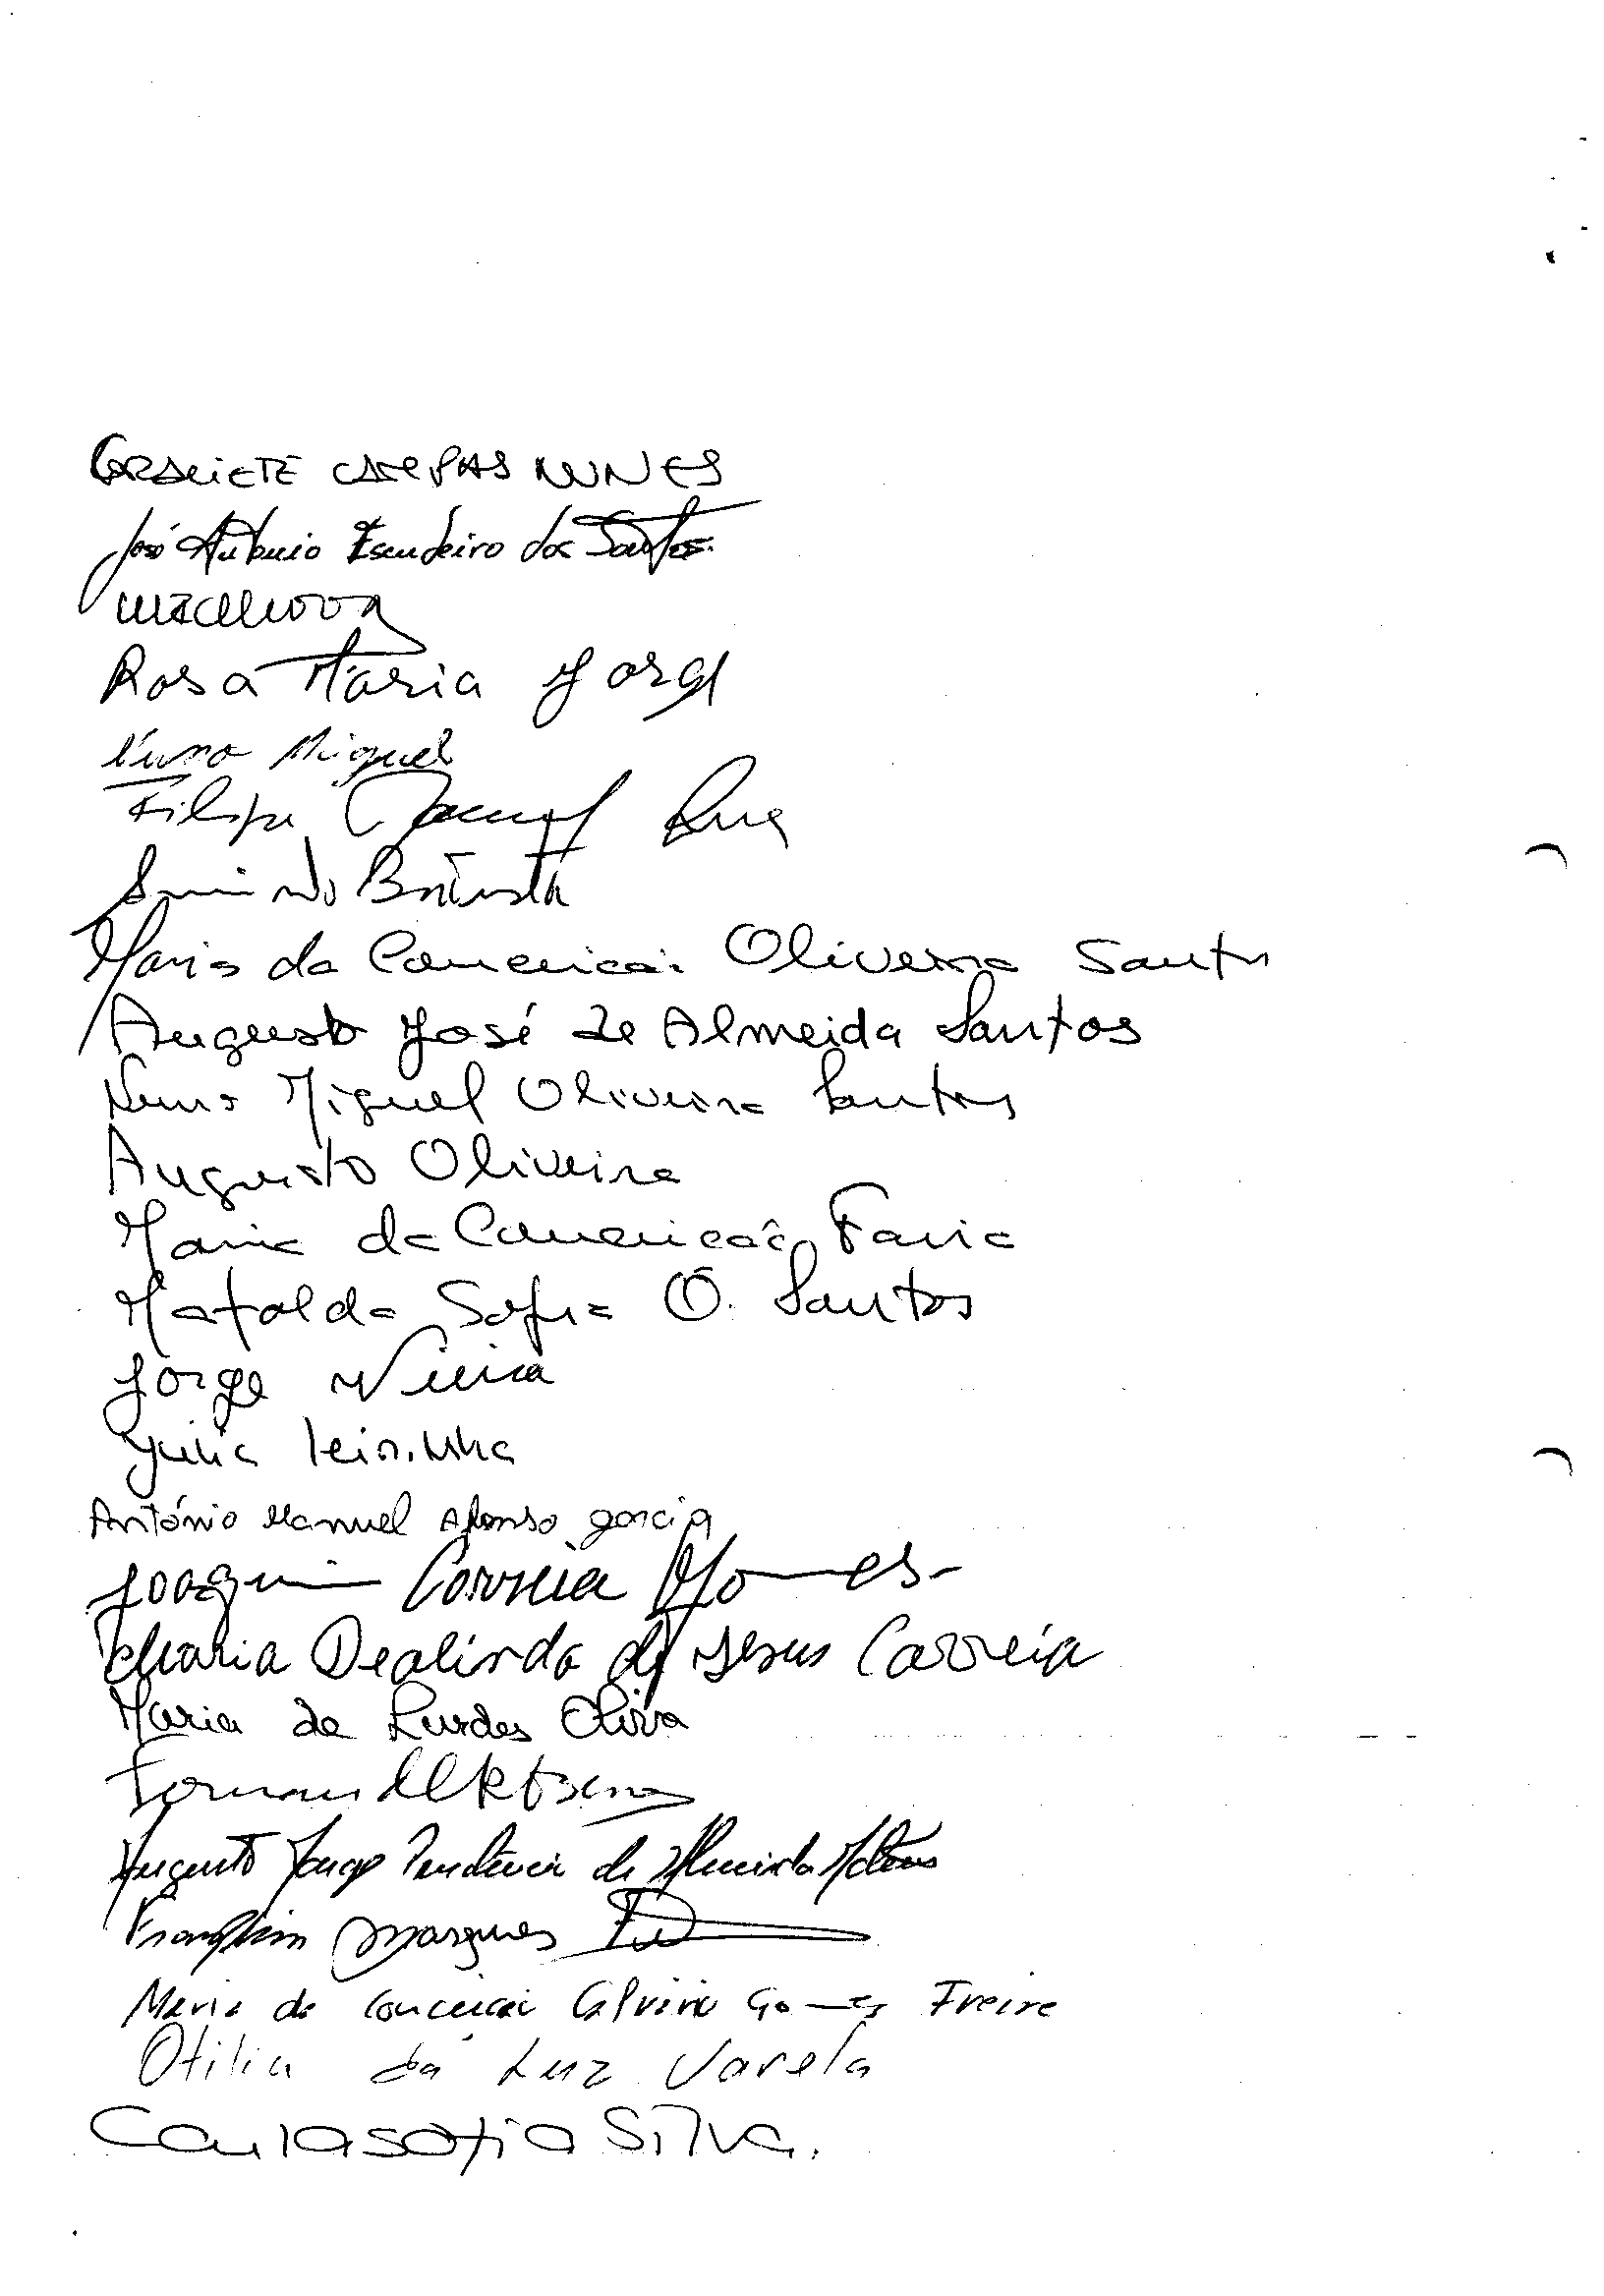 NUNES
José António Escudeiro dos Santos.
Rosa Maria Jorge
Nuno Miguel
Filipe Rua
Batista
Maria da Conceição Oliveira Santos
Augusto José de Almeida Santos
Nuno Miguel Oliveira Santos
Augusto Oliveira
Maria da Conceição Faria
Mafalda Sofia O. Santos
Jorge Vieira
Julia
António Manuel Afonso Garcia
Joaquim Correia Gomes
Maria Dealinda de Jesus Correia
Maria de Lurdes Oliva
Augusto Jorge de Almeida
Franklin Marques
Maria da Conceição Gomes Freire
Otilia da Luz Varela
Carla Sofia Silva.